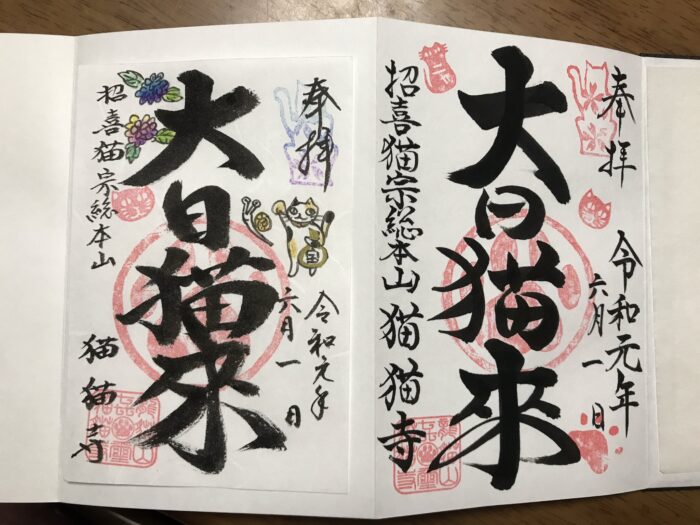 奉拝
令和元年
六月一日
大日猫來
招喜猫宗総本山 猫猫寺
奉拝
令和元年
六月一日
大日猫来
招喜猫宗総本山
猫猫寺